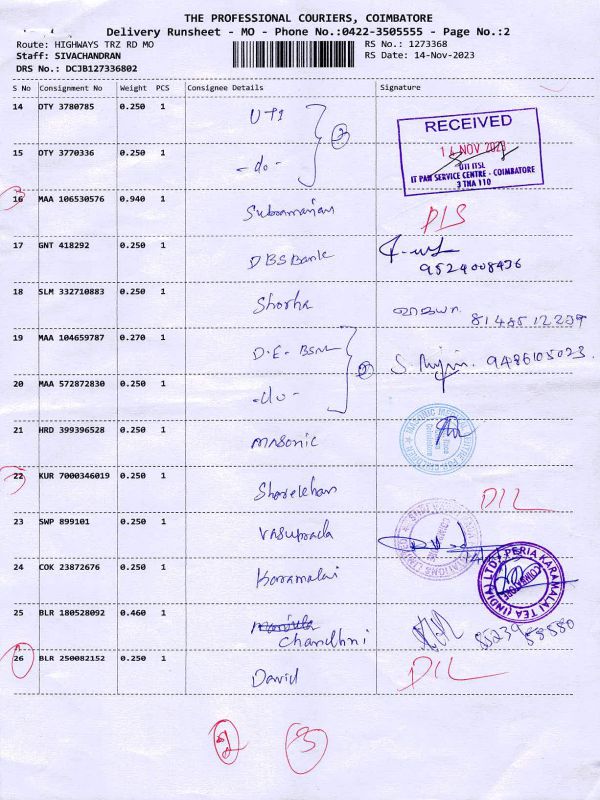 THE PROFESSIONAL COURIERS, COIMBATORE
Delivery Runsheet - MO - Phone No.:0422-3505555 - Page No.:2
Route: HIGHWAYS TRZ RD MO
RS No.: 1273368
Staff: SIVACHANDRAN
RS Date: 14-Nov-2023
DRS No.: DCJB127336802
S No Consignment No Weight PCS Consignee Details Signature
14 OTY 3780785 0.250 1 UTI
RECEIVED
14 NOV 2023
UTI ITSL
IT PAN SERVICE CENTRE - COIMBATORE
3 TNA 110
15 OTY 3770336 0.250 1 -do-
2
16 MAA 106530576 0.940 1 Subramaniam
17 GNT 418292 0.250 1 DBS Bank
9524008436
18 SLM 332710883 0.250 1 Shorha
19 MAA 104659787 0.270 1 D.E - BSNL
9486105023
20 MAA 572872830 0.250 1 -do-
2
21 HRD 399396528 0.250 1 Masonic
22 KUR 7000346019 0.250 1 Sharekhan DIL
23 SWP 899101 0.250 1 Vasuprada
24 COK 23872676 0.250 1 Karamalai
PERIA KARAMALAI TEA (INDIA) LTD
COIMBATORE
25 BLR 180528092 0.460 1 Chandhni
26 BLR 250082152 0.250 1 David DIL
3